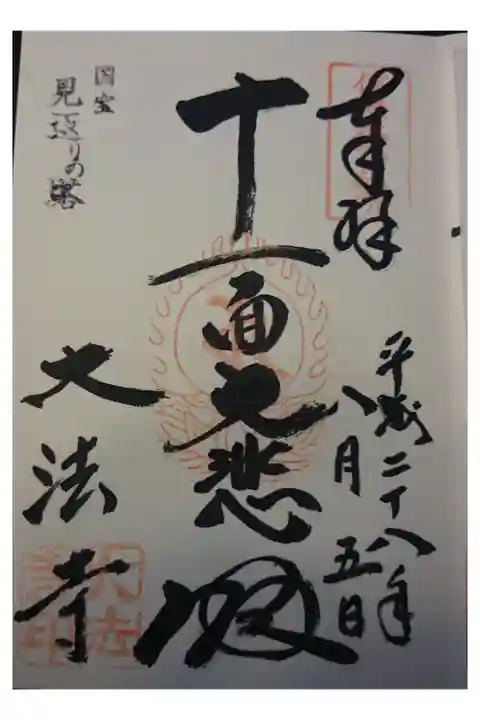 奉拝
平成二十八年
八月五日
十一面大悲殿
国宝
見返りの塔
大法寺